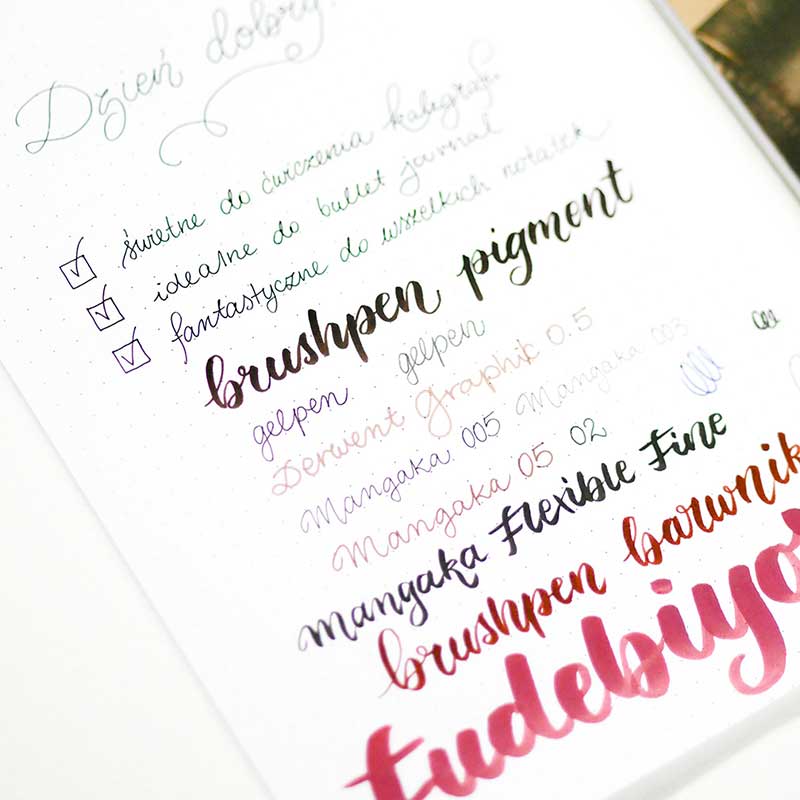 Dzień dobry!
świetne do ćwiczenia kaligrafii
idealne do bullet journal
fantastyczne do wszelkich notatek
brushpen pigment
gelpen gelpen
Derwent Graphik 0.5
Mangaka 005 Mangaka 003
Mangaka 05 02
mangaka Flexible Fine
brushpen barwnik
tudebiyo